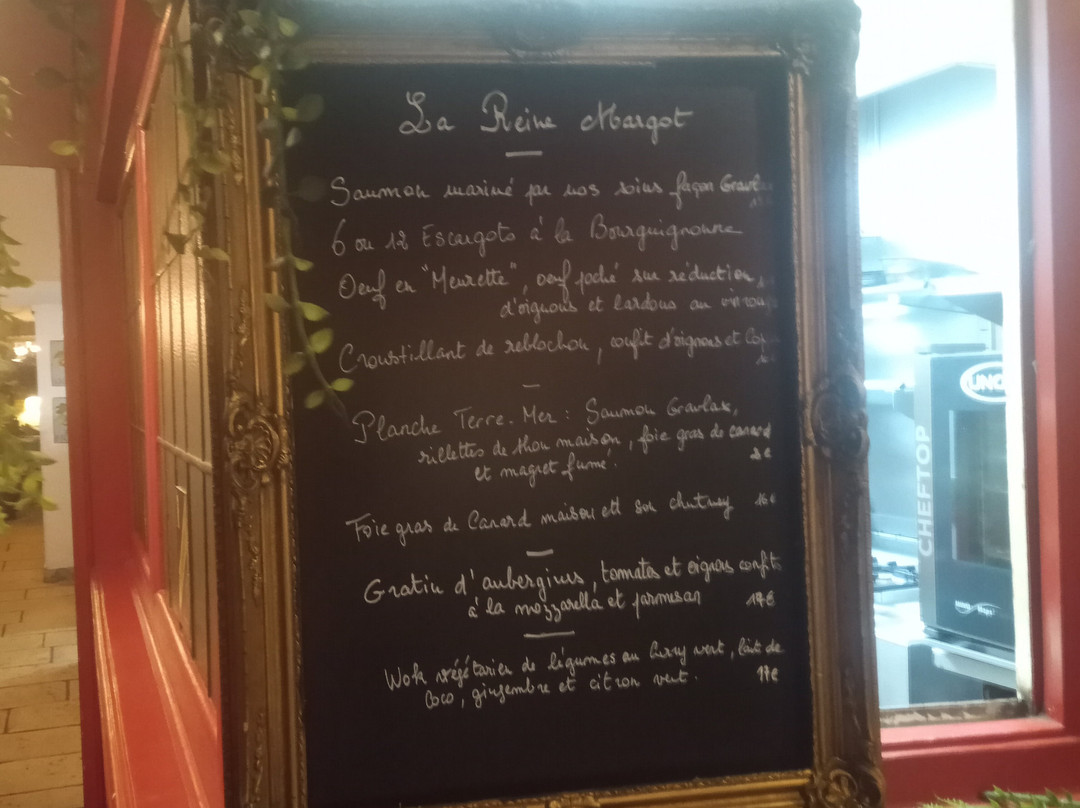 La Reine Margot
Saumon mariné par nos soins façon Gravlax
6 ou 12 Escargots à la Bourguignonne
Oeuf en "Meurette", oeuf poché sur réduction
d'oignons et lardons au vin rouge
Croustillant de reblochon, confit d'oignons et
Planche Terre-Mer : Saumon Gravlax,
rillettes de thon maison, foie gras de canard
et magret fumé.
Foie gras de Canard maison et son chutney 16€
Gratin d'aubergines, tomates et oignons confits
à la mozzarella et parmesan
Wok végétarien de légumes au curry vert, lait de
Coco, gingembre et citron vert. 17€
UNO
CHEFTOP